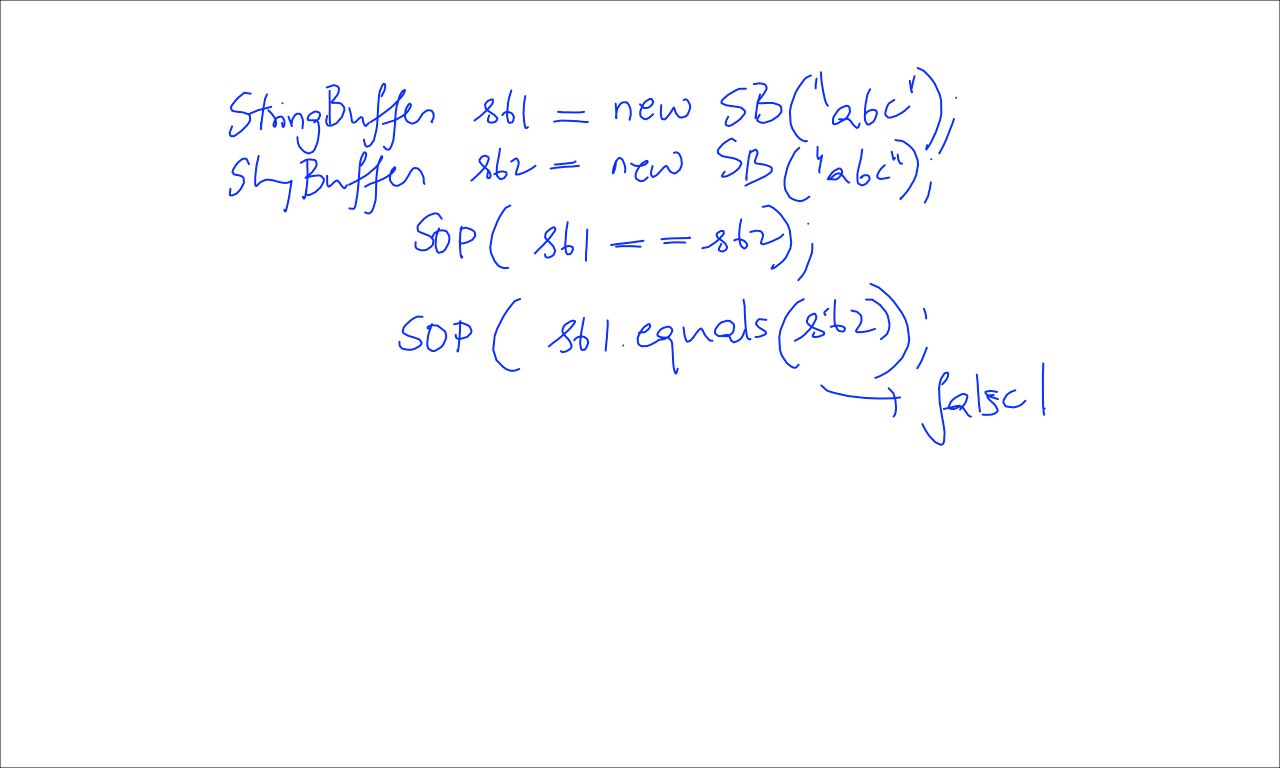 StringBuffer sb1 = new SB("abc");
StringBuffer sb2 = new SB("abc");
SOP( sb1 == sb2);
SOP( sb1.equals(sb2));
→ false